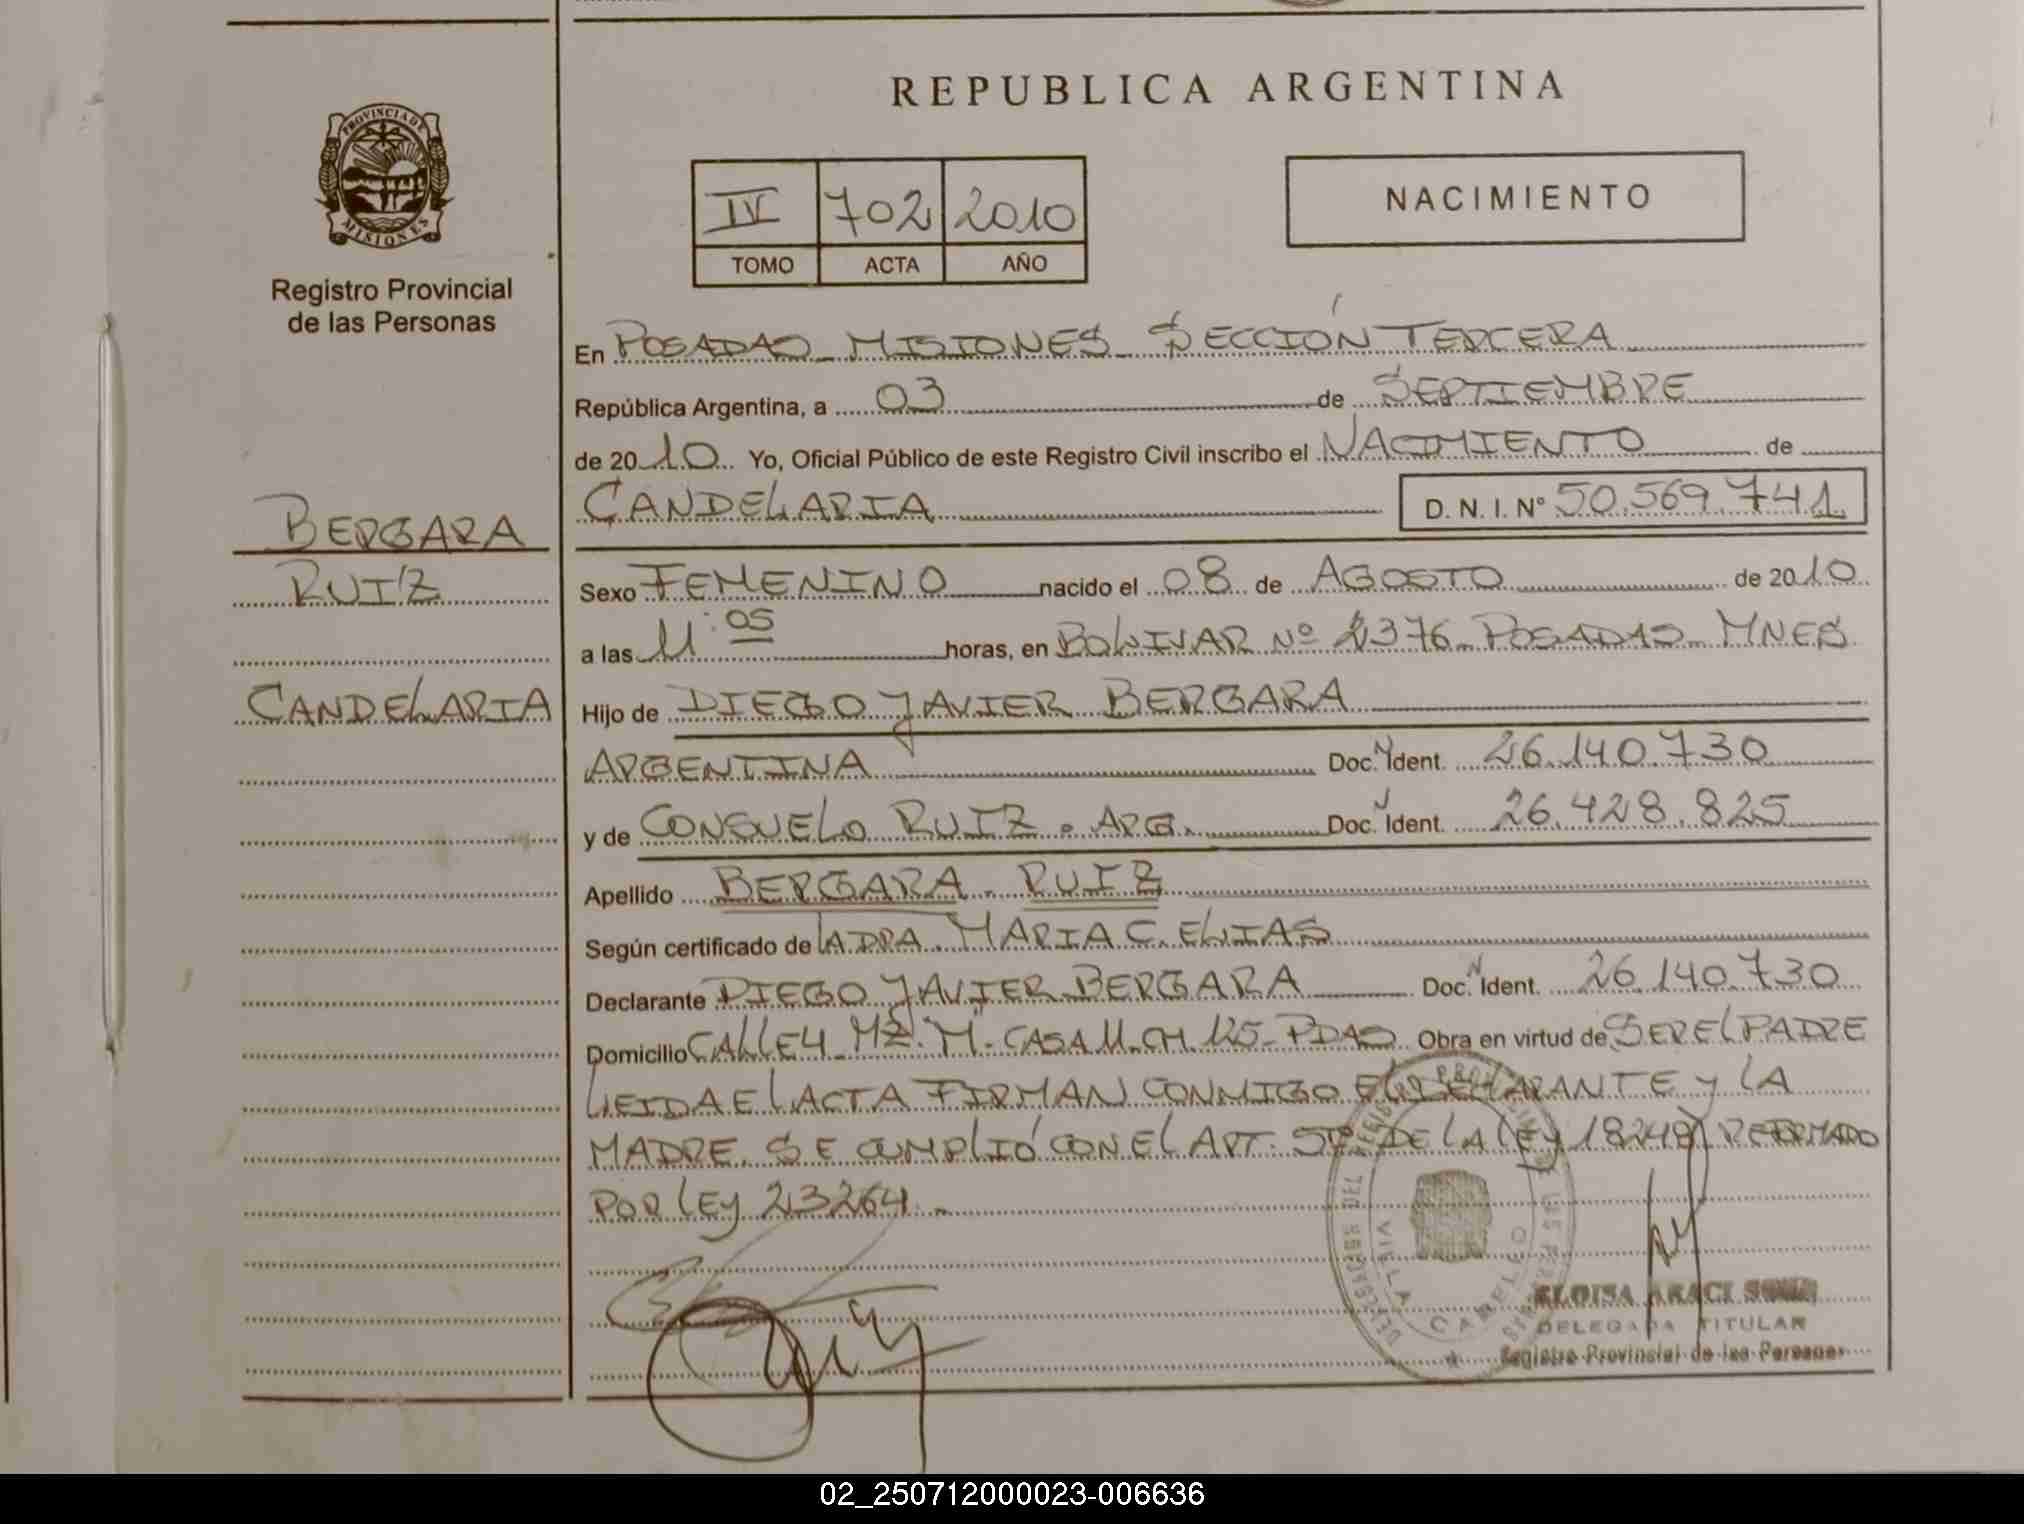 REPUBLICA ARGENTINA
PROVINCIA DE
MISIONES
Registro Provincial
de las Personas
IV 702 2010
TOMO ACTA AÑO
NACIMIENTO
En POSADAS MISIONES SECCIÓN TERCERA
República Argentina, a 03 de SEPTIEMBRE
de 2010 Yo, Oficial Público de este Registro Civil inscribo el NACIMIENTO de
CANDELARIA D. N. I. Nº 50.569.741
BERGARA
RUIZ
CANDELARIA
Sexo FEMENINO nacido el 08 de AGOSTO de 2010
a las 11:05 horas, en BOLIVAR Nº 2376 - POSADAS - MNES
Hijo de DIEGO JAVIER BERGARA
ARGENTINA Doc. Ident. 26.140.730
y de CONSUELO RUIZ. ARG. Doc. Ident. 26.428.825
Apellido BERGARA - RUIZ
Según certificado de LA DRA. MARIA C. ELIAS
Declarante DIEGO JAVIER BERGARA Doc. Ident. 26.140.730
Domicilio CALLE 4 MZ. M. CASA 11. CH. 125 - PDAS Obra en virtud de SER EL PADRE
LEIDA EL ACTA FIRMAN CONMIGO EL DECLARANTE y LA
MADRE. SE CUMPLIÓ CON EL ART. 5º DE LA LEY 18248 REFORMADO
POR LEY 23264.-
VILLA CABELLO
ELOISA ARACI
DELEGADA TITULAR
Registro Provincial de las Personas
02_250712000023-006636